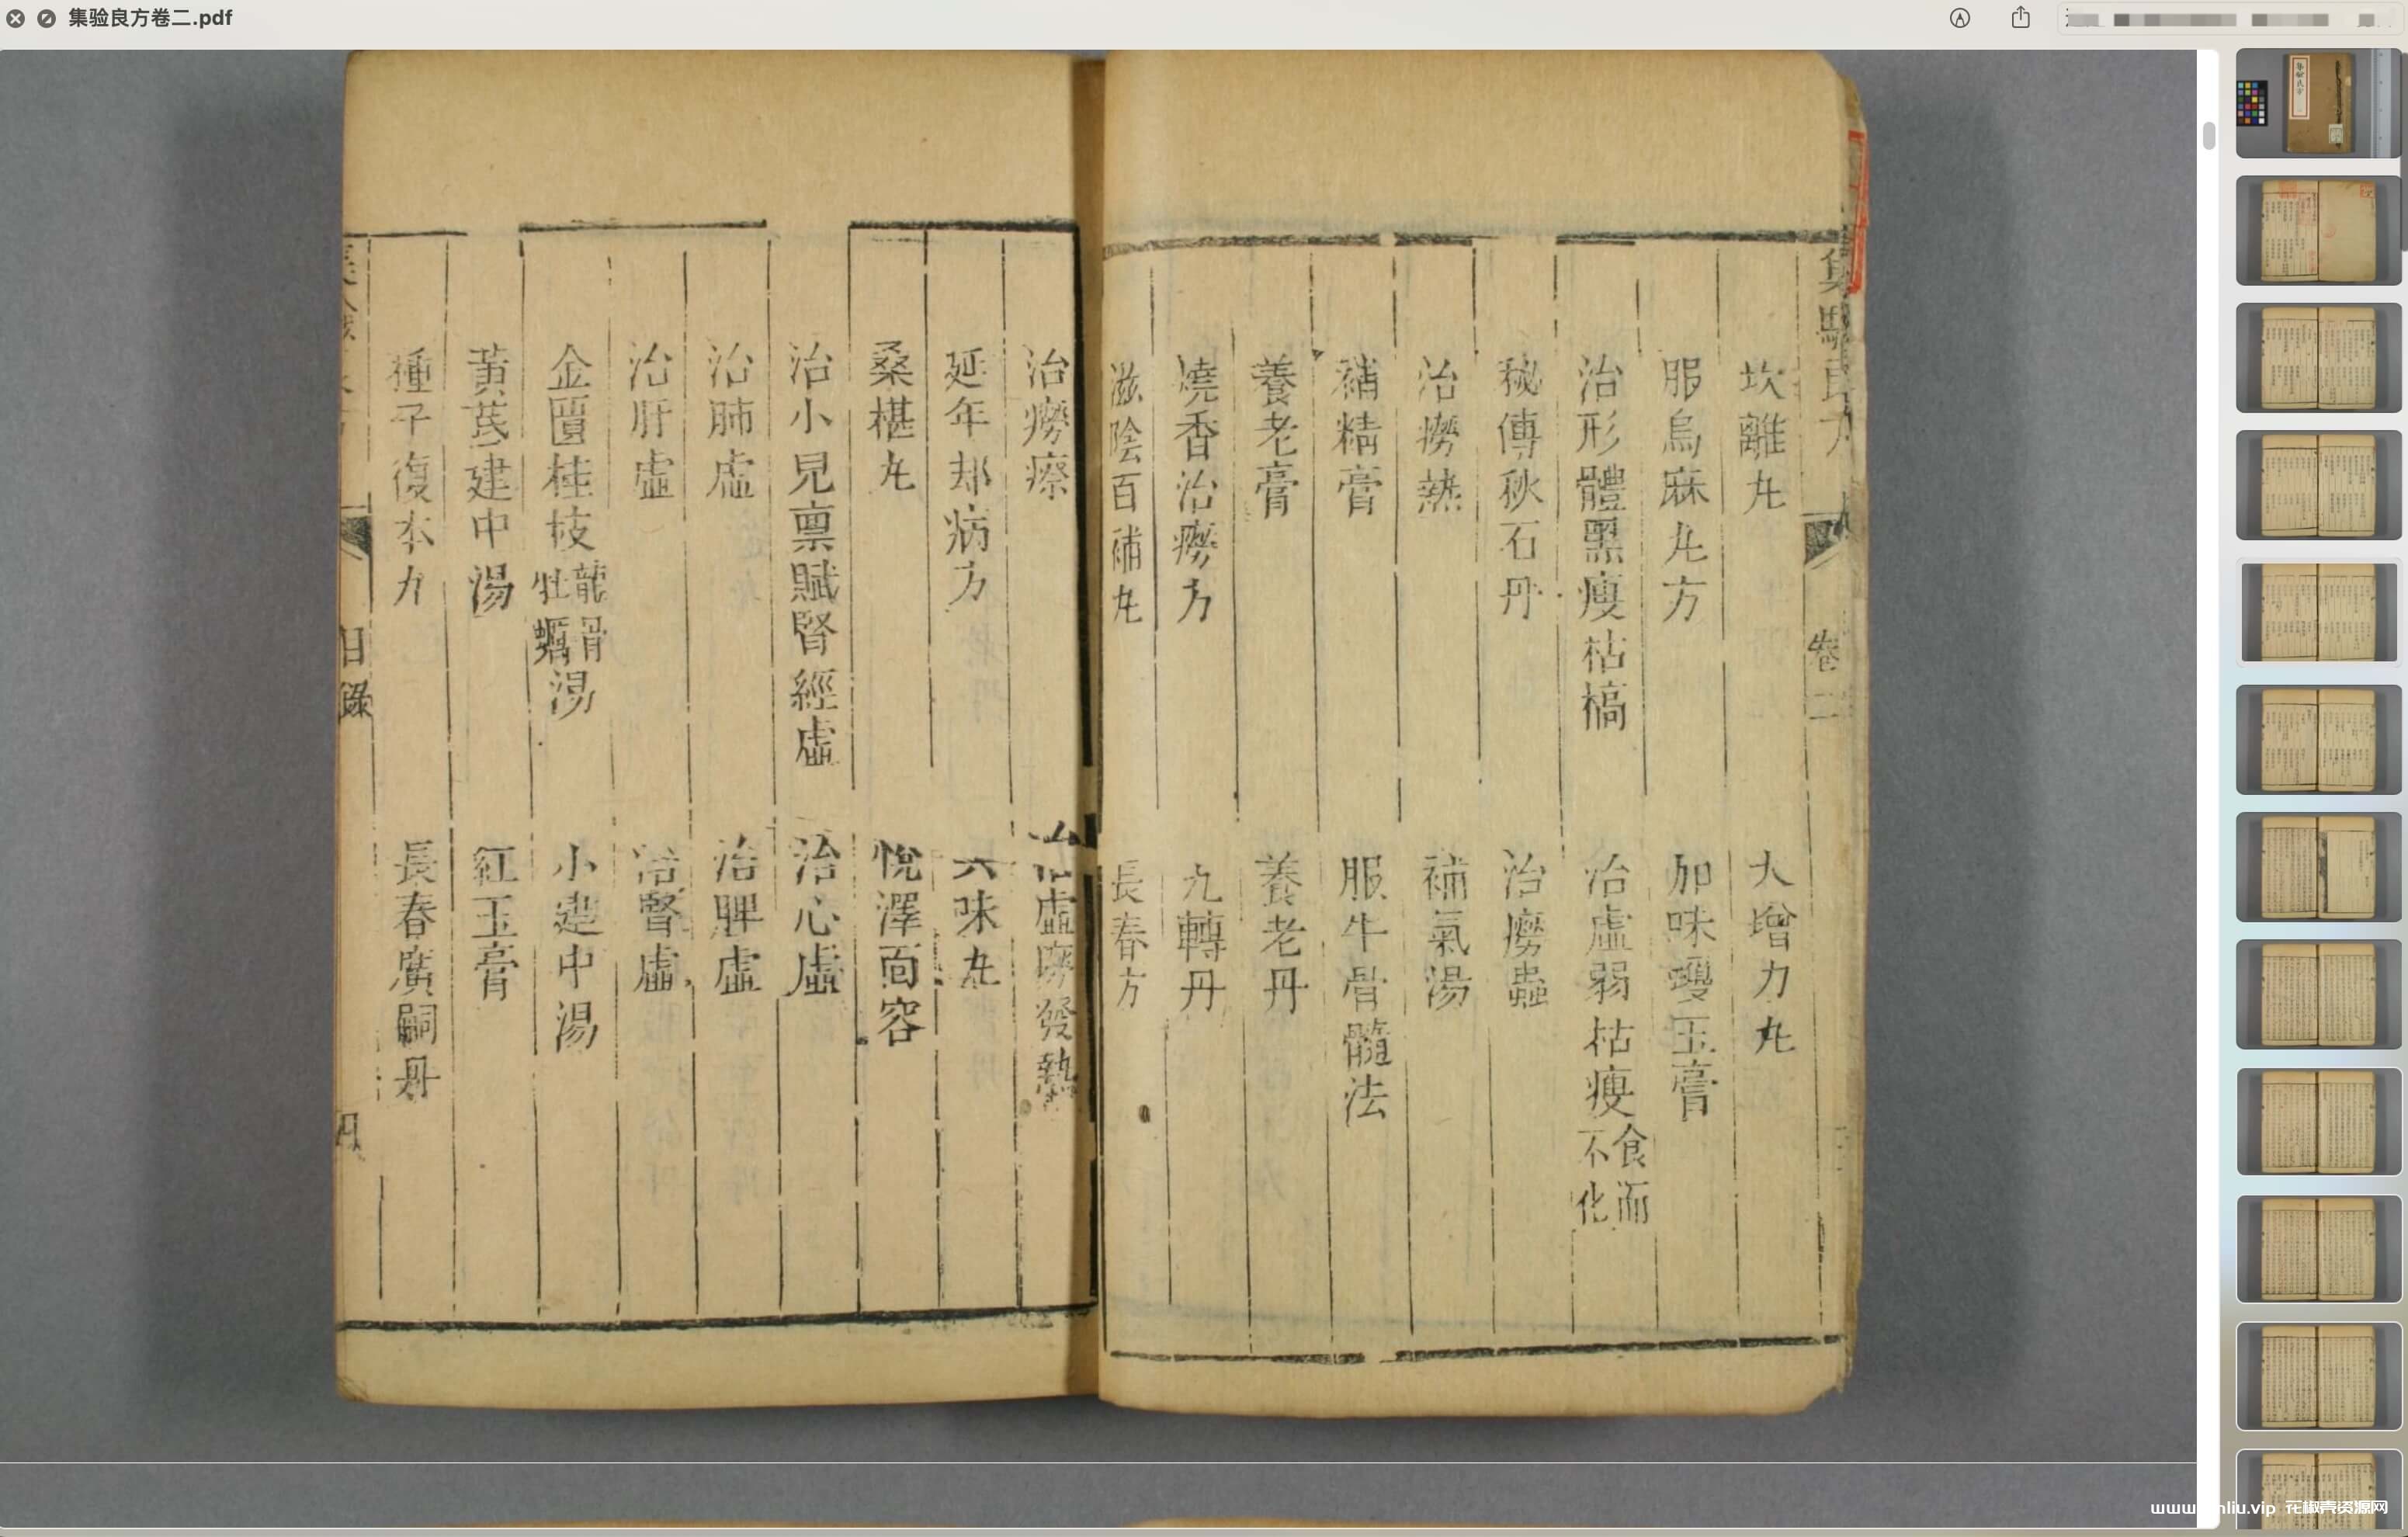 集验良方卷二.pdf
集驗良方
卷二
坎離丸
大增力丸
服烏麻丸方
加味瓊玉膏
治形體黑瘦枯槁
治虛弱枯瘦食而不化
秘傳秋石丹
治癆蟲
治癆熱
補氣湯
補精膏
服牛骨髓法
養老膏
養老丹
燒香治癆方
九轉丹
滋陰百補丸
長春方
治癆瘵
治虛勞發熱
延年却病方
六味丸
桑椹丸
悅澤面容
治小兒禀賦腎經虛
治心虛
治肺虛
治脾虛
治肝虛
治腎虛
金匱桂枝龍骨牡蠣湯
小建中湯
黃芪建中湯
紅玉膏
種子復本丸
長春廣嗣丹
目錄
花椒壳资源网